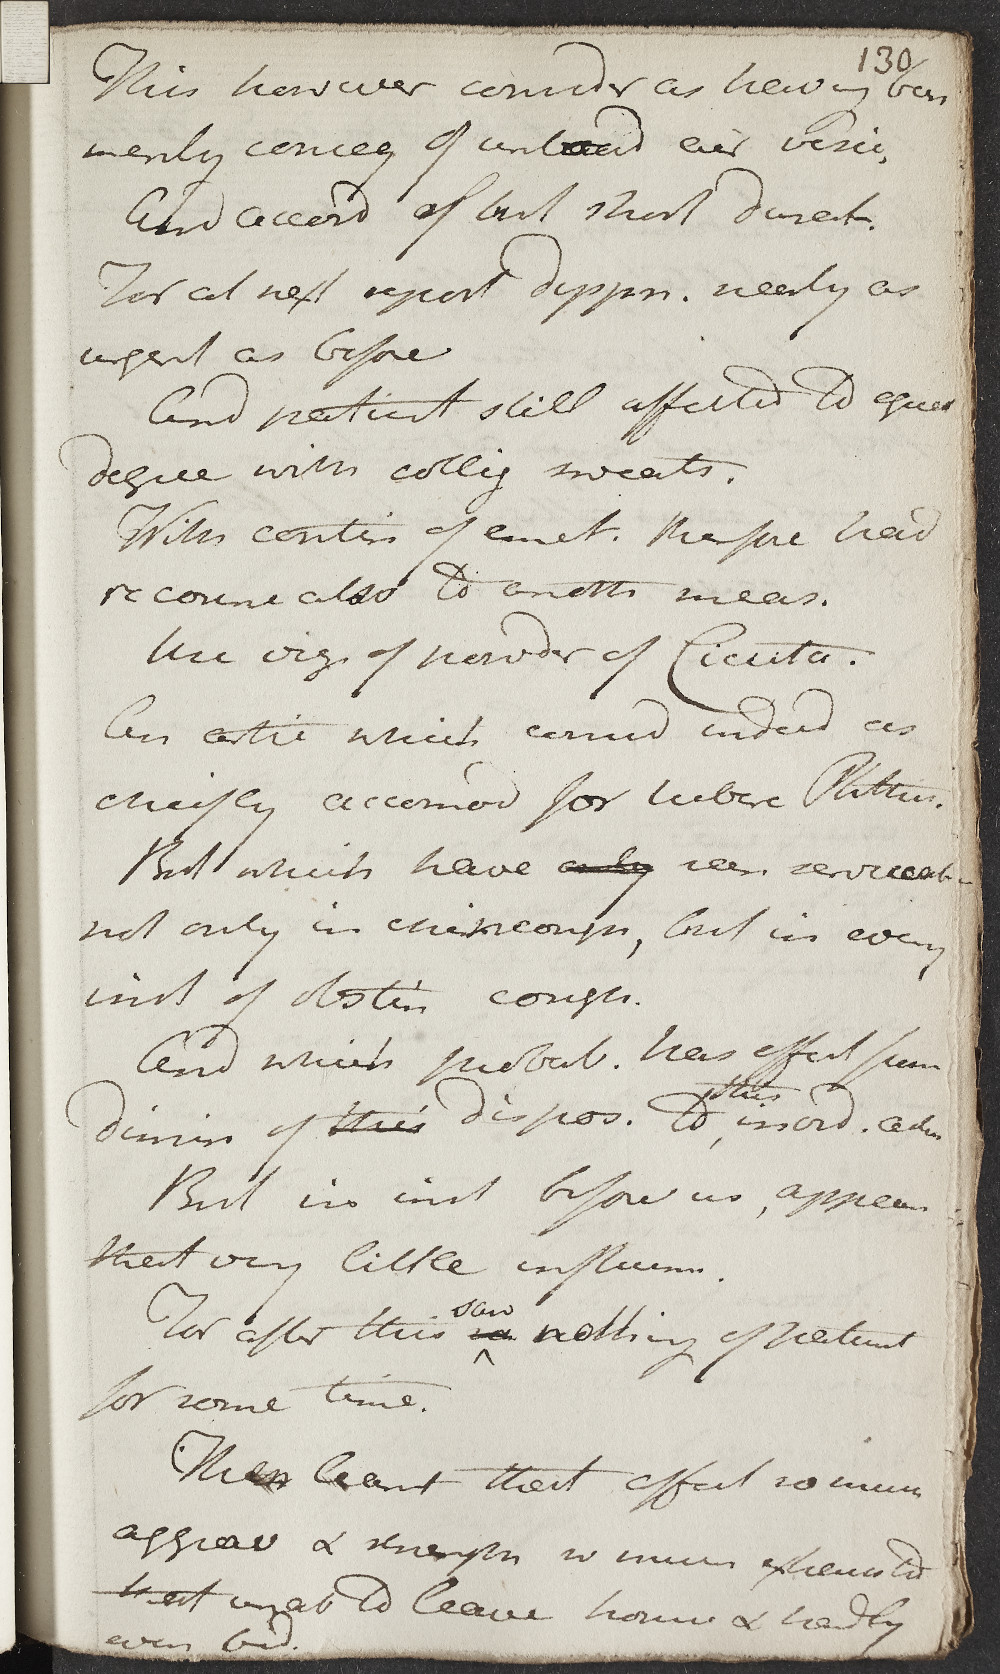 130
This however consider as having been
merely conseq of unload air vesic,
And accord of but short durat.
For at next report dyspn. nearly as
urgent as before
And patient still affected to equal
degree with collig sweats.
With contin of emet. therefore had
recourse also to anoth meas.
Use viz. of powder of Cicuta.
An artic which consid indeed as
cheifly accomod for tuberc Phthis.
But which have only seen serviceab
not only in chincough, but in every
inst of obstin cough.
And which probab. has effect from
dimin of this dispos. to this inord. action
But in inst before us, appear
that very little influen.
For after this saw nothing of patient
for some time.
Then learnt that affect so much
aggrav & strength so much exhausted
that unab to leave house & hardly
even bed.